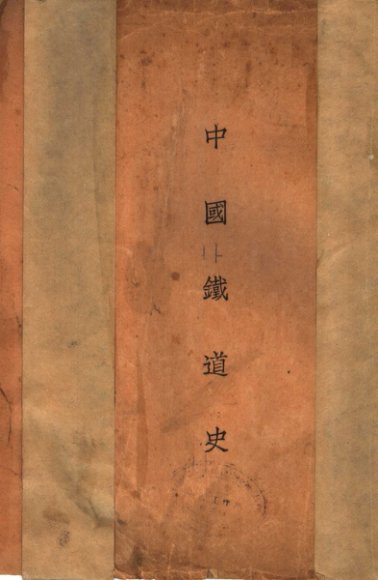 中國鐵道史